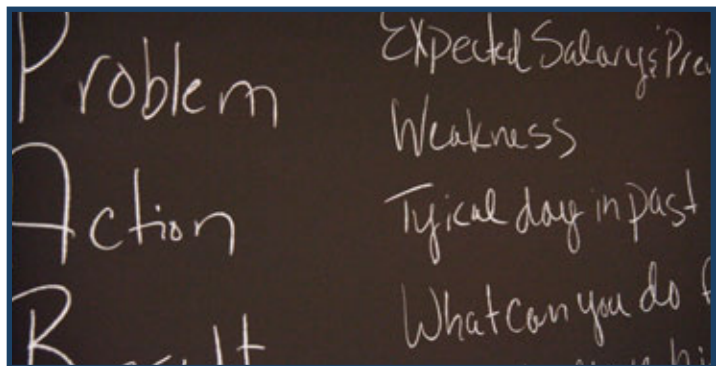 Problem
Action
Result
Expected Salary & Prev
Weakness
Tyical day in past
What can you do f